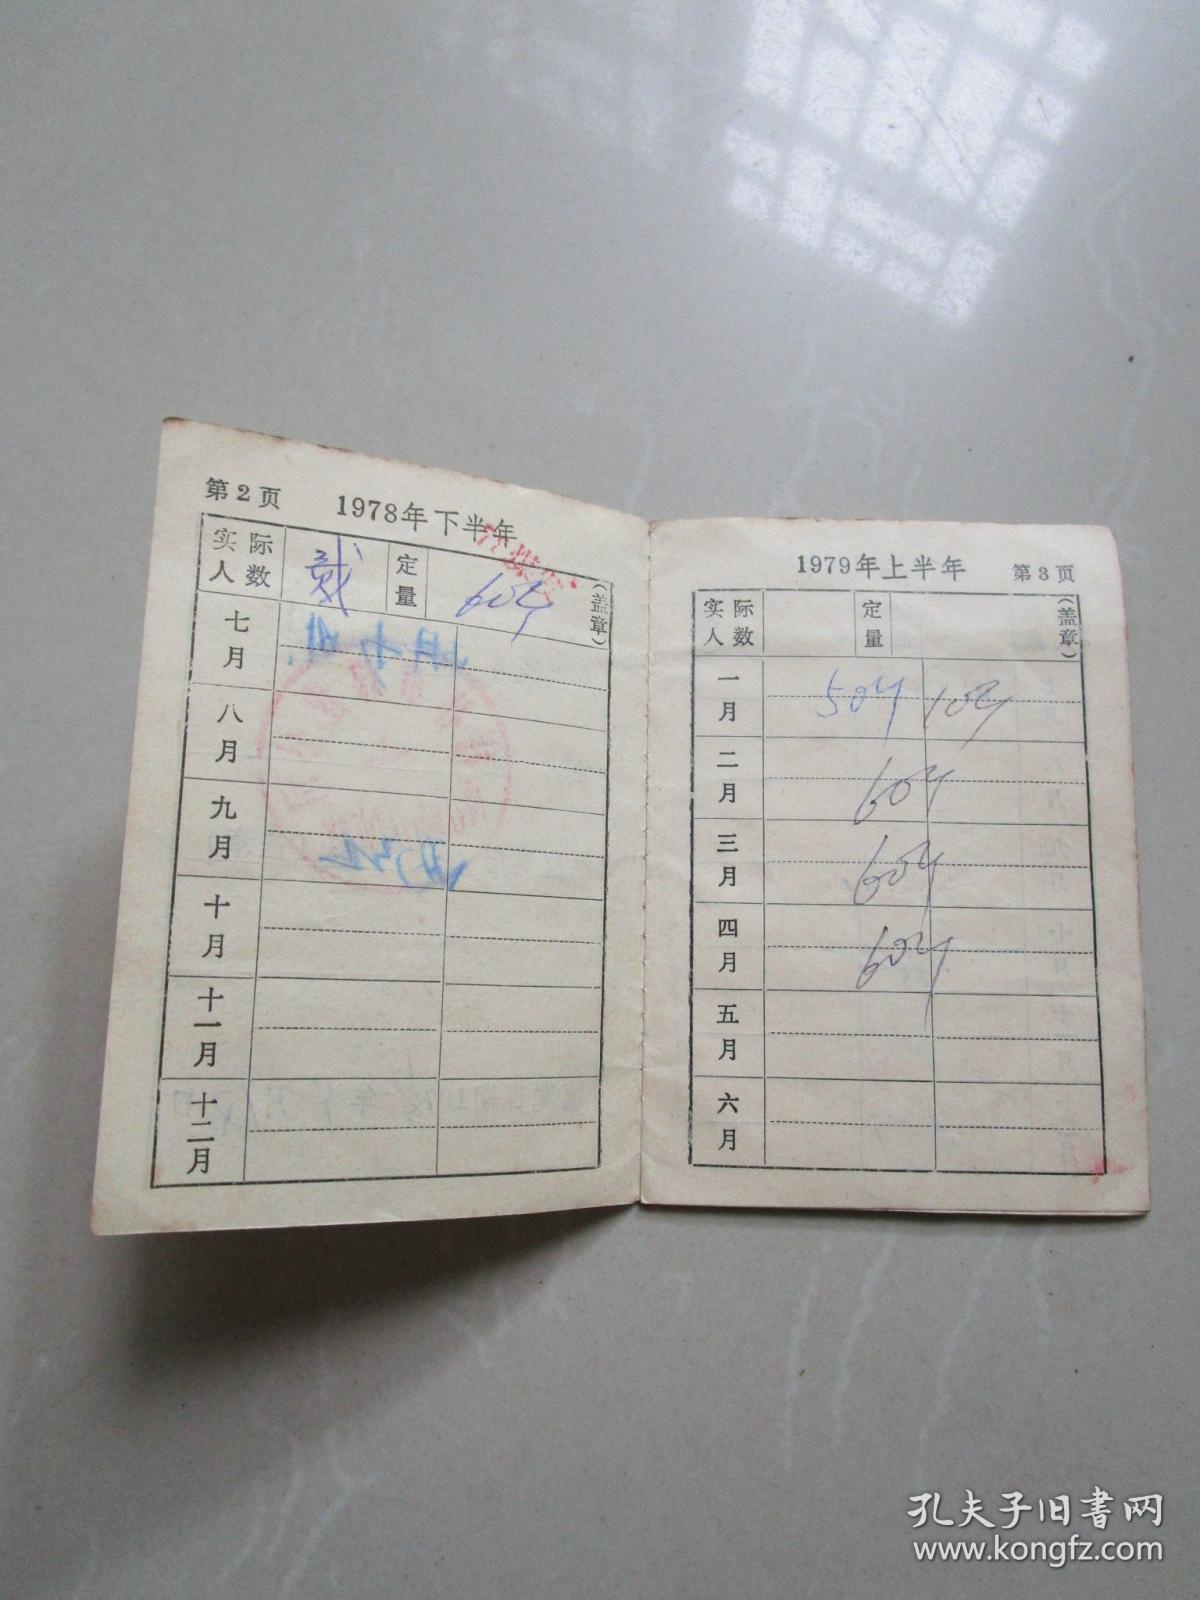 第2页 1978年下半年
实际人数 定量 60斤 (盖章)
七月
八月
九月
十月
十一月
十二月
1979年上半年 第3页
实际人数 定量 (盖章)
一月 50斤 10斤
二月 60斤
三月 60斤
四月 60斤
五月
六月
孔夫子旧书网
www.kongfz.com